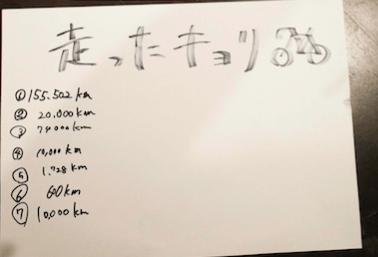 走ったキョリ
① 155.502km
② 20.000km
③ 74000km
④ 10,000km
⑤ 1.728km
⑥ 600km
⑦ 10,000km